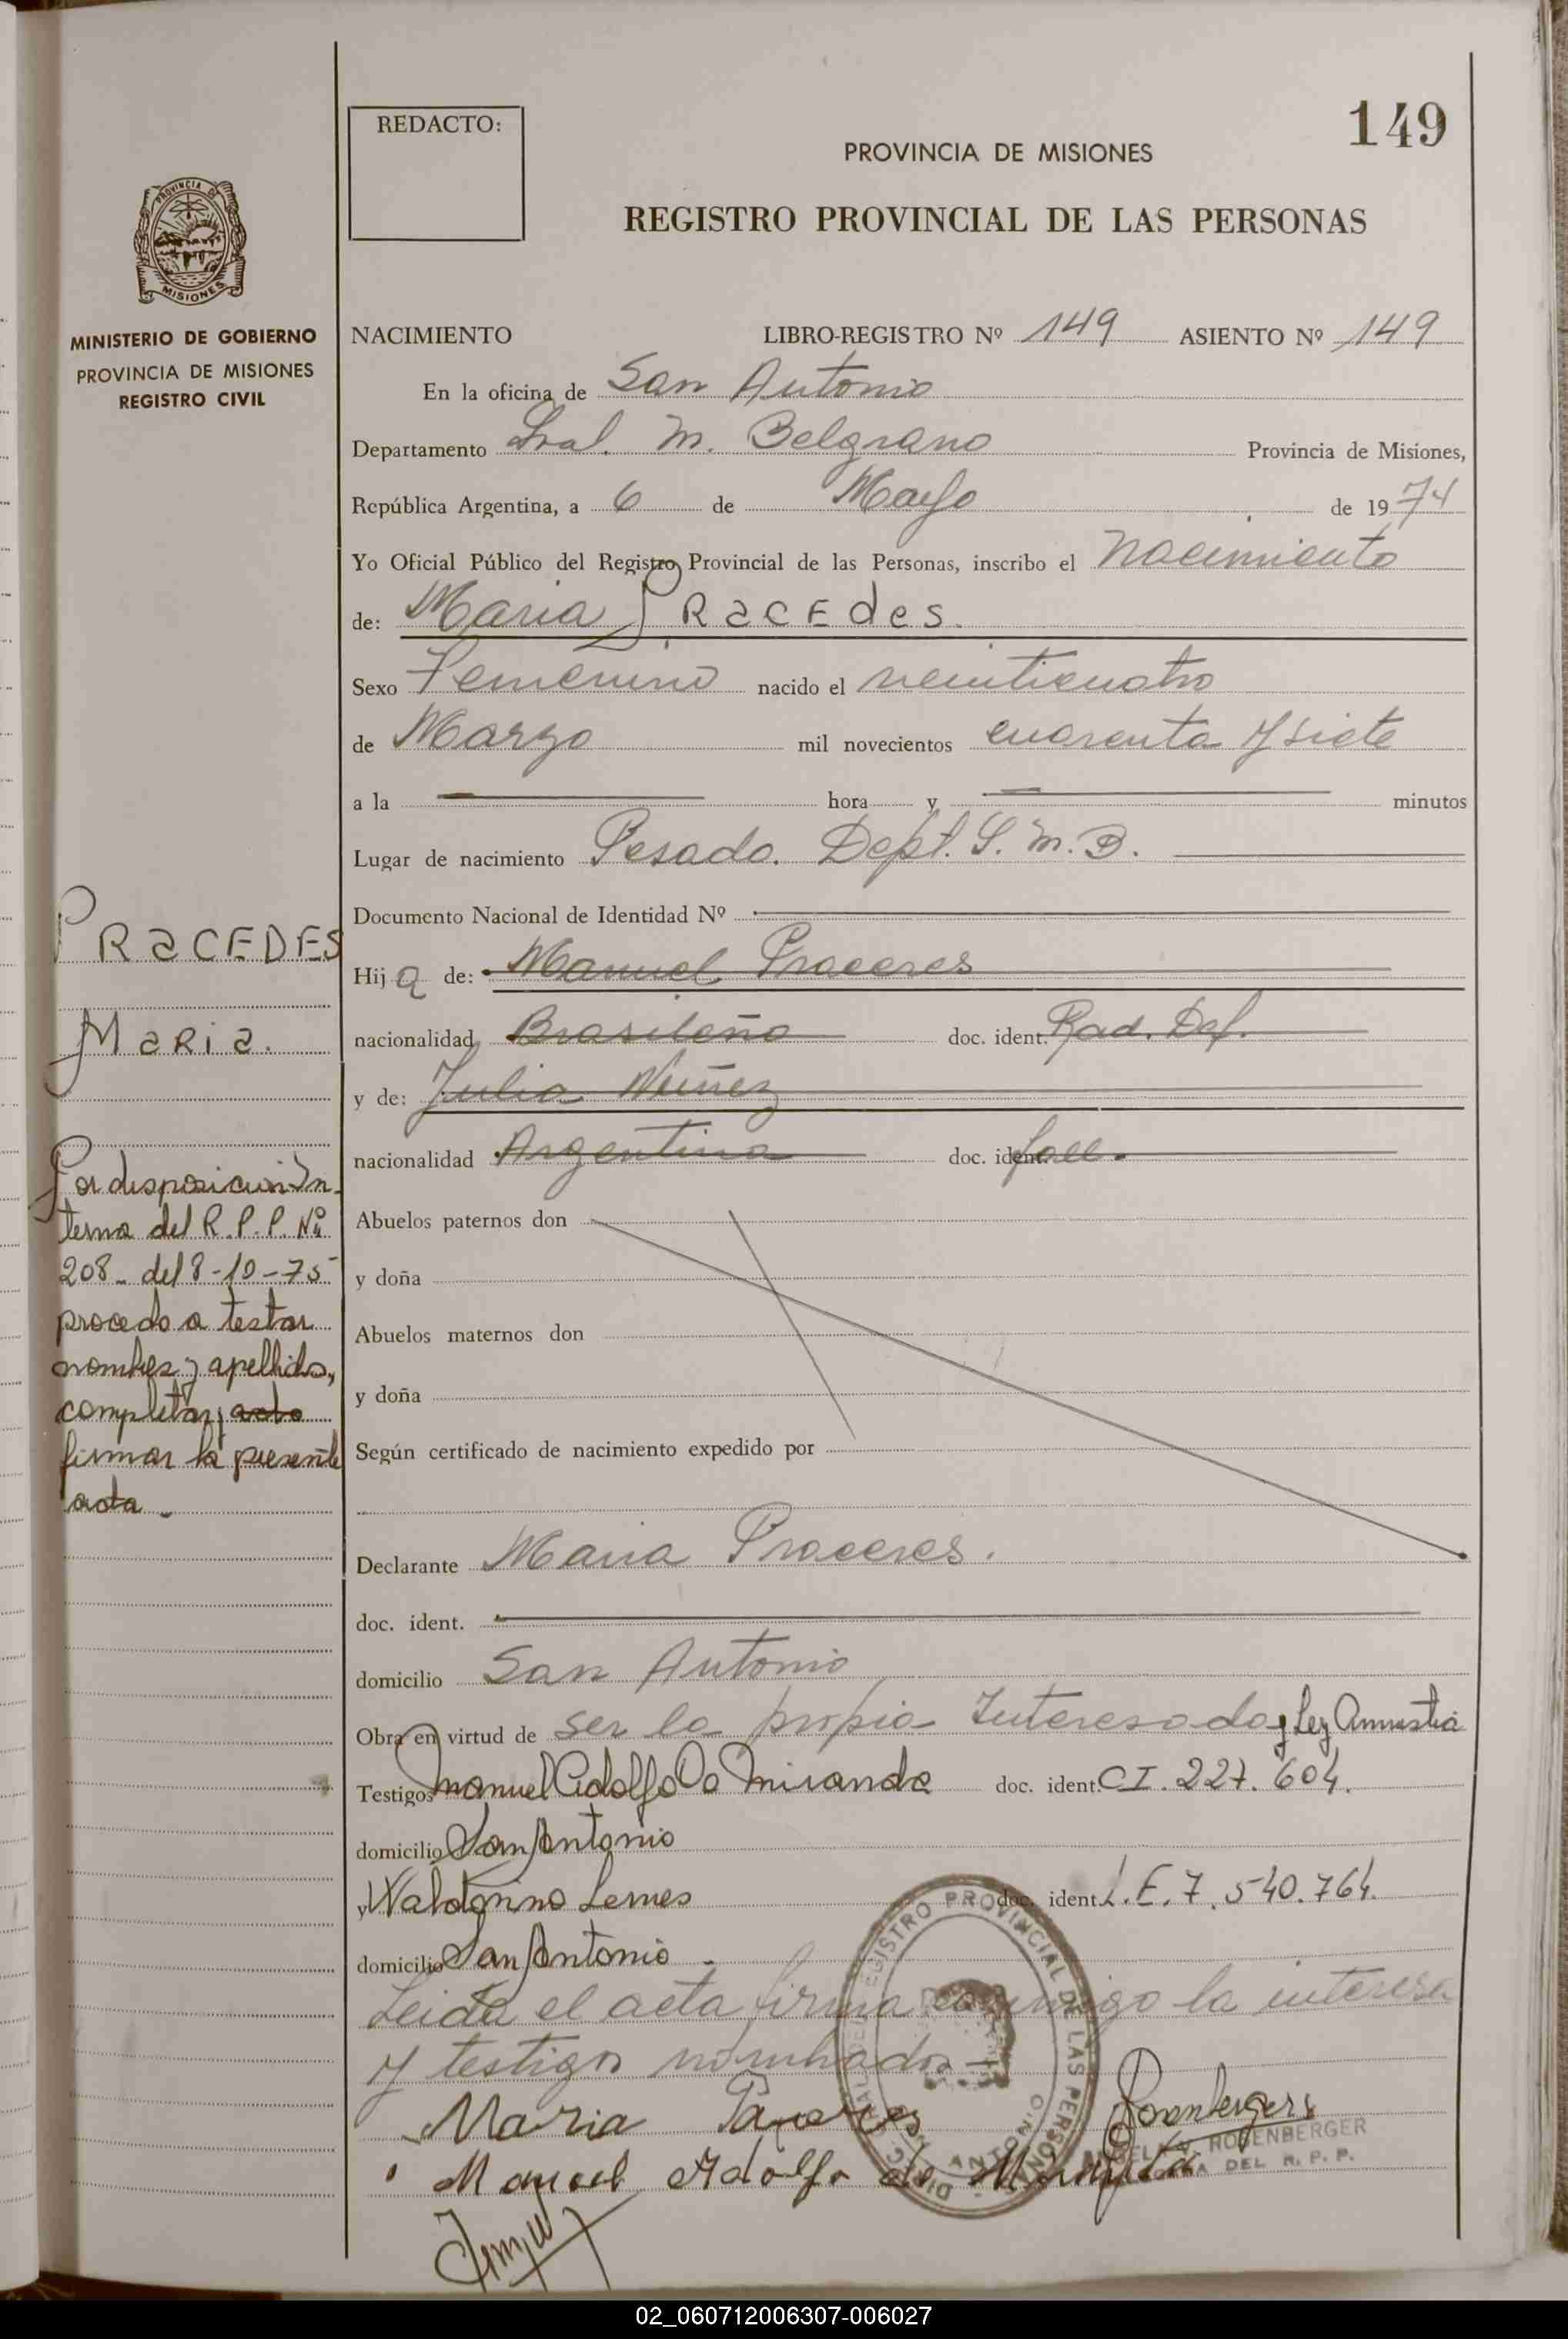 149
REDACTO:
PROVINCIA DE MISIONES
REGISTRO PROVINCIAL DE LAS PERSONAS
PROVINCIA DE
MISIONES
MINISTERIO DE GOBIERNO
PROVINCIA DE MISIONES
REGISTRO CIVIL
NACIMIENTO LIBRO-REGISTRO Nº 149 ASIENTO Nº 149
En la oficina de San Antonio
Departamento Gral. M. Belgrano Provincia de Misiones,
República Argentina, a 6 de Mayo de 1974
Yo Oficial Público del Registro Provincial de las Personas, inscribo el nacimiento
de: Maria PRaCEdes.
Sexo Femenino nacido el veinticuatro
de Marzo mil novecientos cuarenta y siete
a la hora y minutos
Lugar de nacimiento Pesado. Dept. G. M. B.
Documento Nacional de Identidad Nº
Hija de: Manuel Praceres
nacionalidad Brasileña doc. ident. Rad. Def.
y de: Julia Nuñez
nacionalidad Argentina doc. ident. fall.
Abuelos paternos don
y doña
Abuelos maternos don
y doña
Según certificado de nacimiento expedido por
Declarante Maria Praceres.
doc. ident.
domicilio San Antonio
Obra en virtud de ser la propia Interesada y Ley Amnistia
Testigos Manuel Adolfo Da Miranda doc. ident. CI. 227.604.
domicilio San Antonio
y Waldonino Lemes doc. ident. L.E. 7.540.764.
domicilio San Antonio
Leida el acta firma conmigo la interesa
y testigos nombrados
Maria
Manuel Adolfo de
PRaCEDES
MaRia.
Por disposicion In-
terna del R.P.P. Nº
208- del 8-10-75
procedo a testar
nombres y apellidos,
completar, acta
firmar la presente
acta
REGISTRO PROVINCIAL DE LAS PERSONAS
ROSENBERGER
DEL R. P. P.
02_060712006307-006027